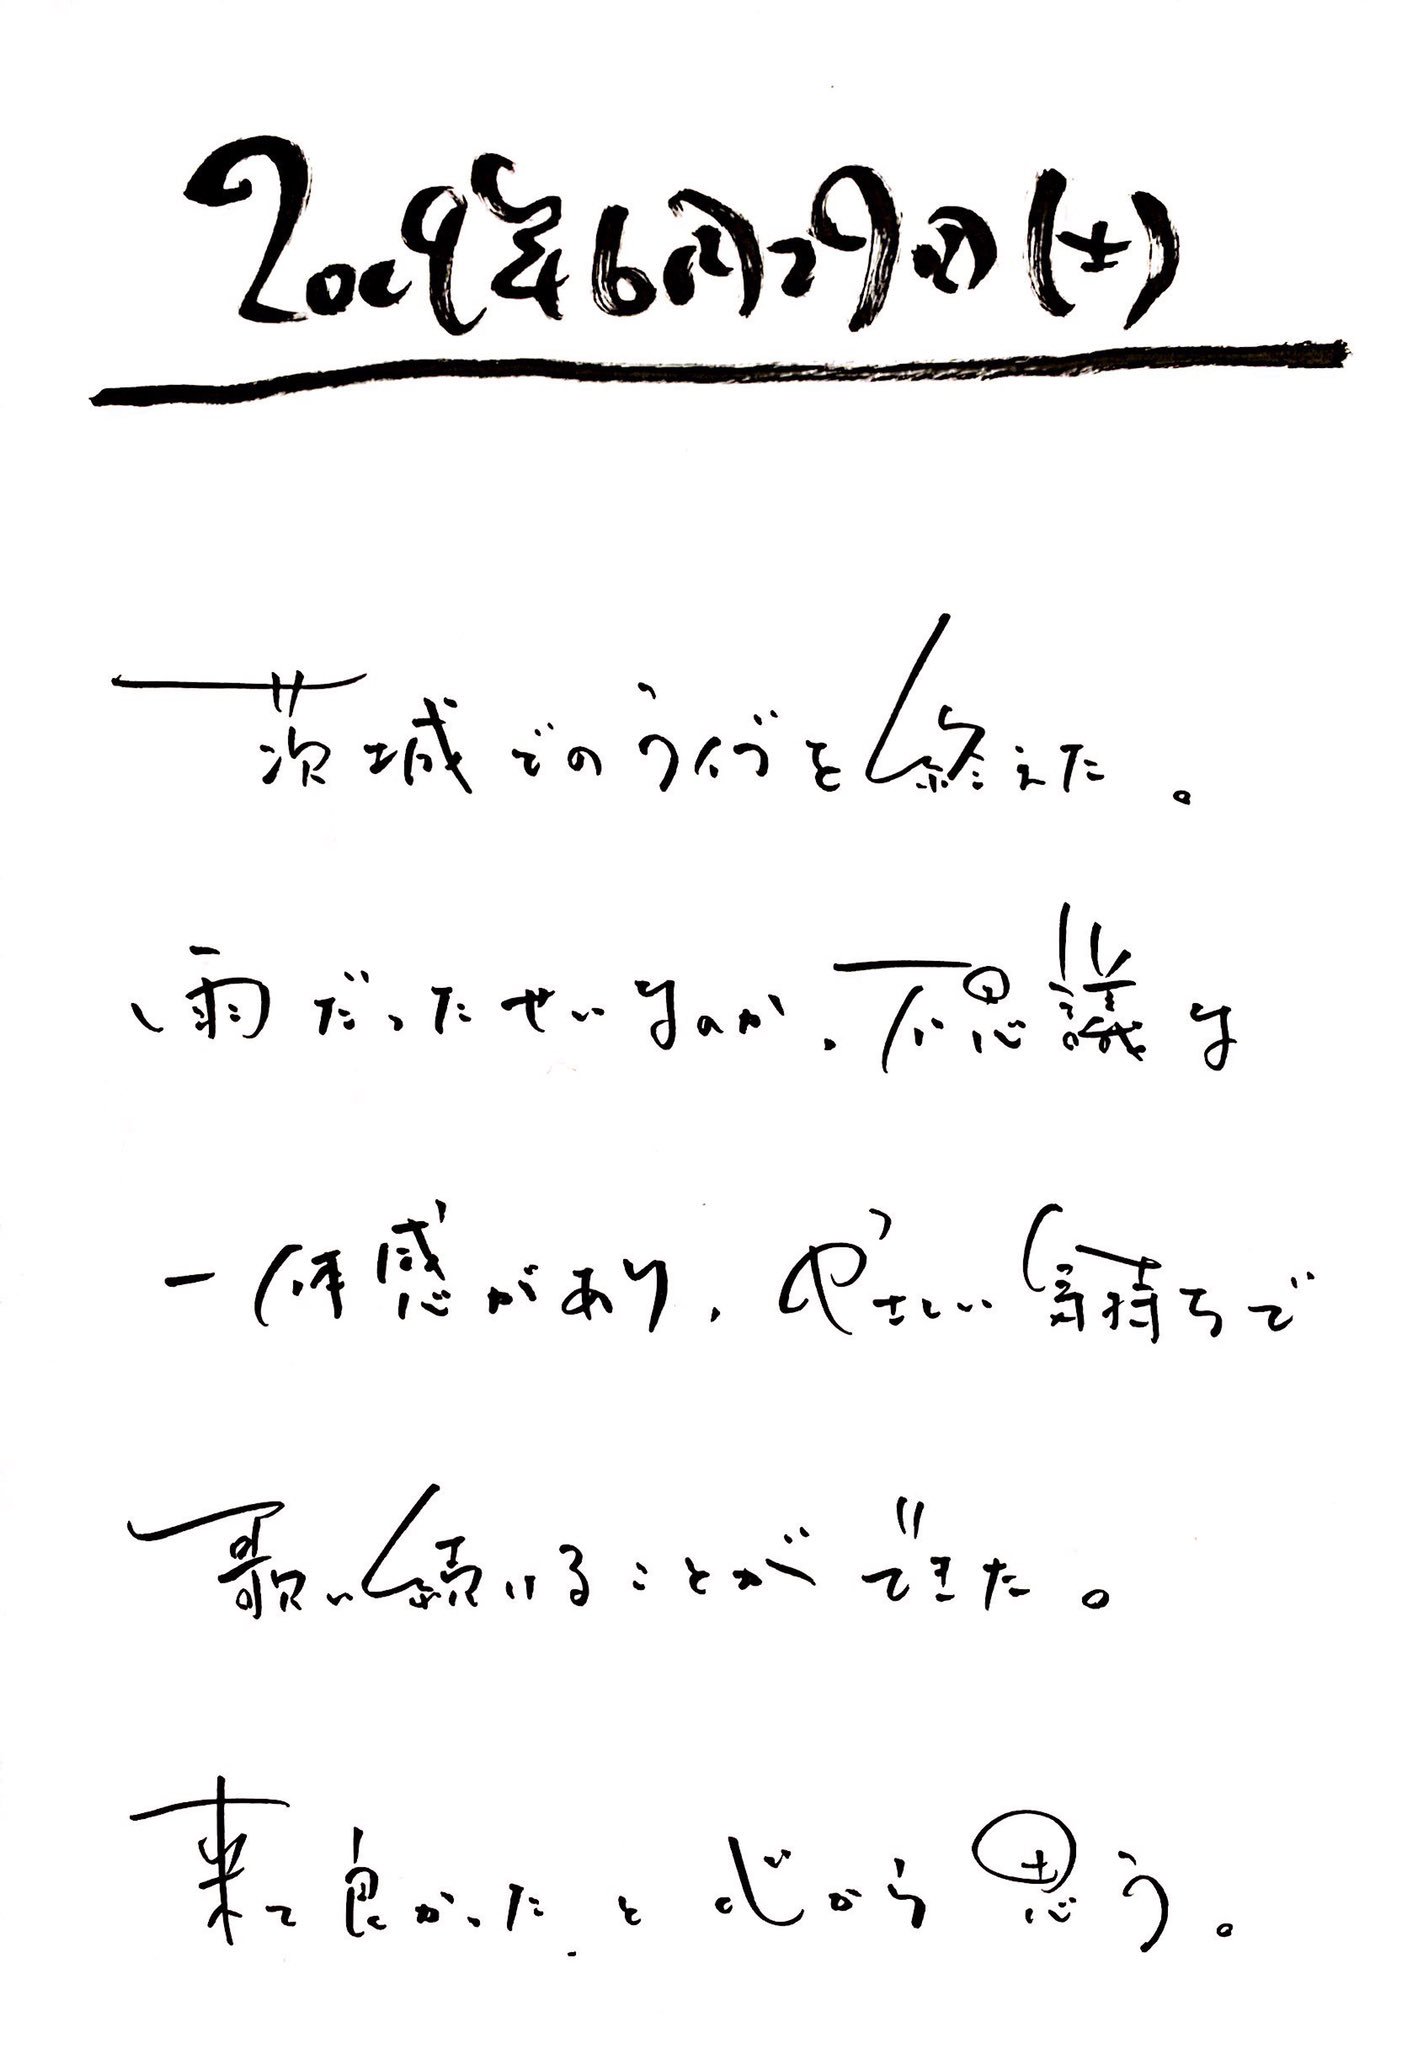 2019年6月29日(土)
茨城でのライブを終えた。
雨だったせいなのか、不思議な
一体感があり、やさしい気持ちで
歌い続けることができた。
来て良かったと心から思う。